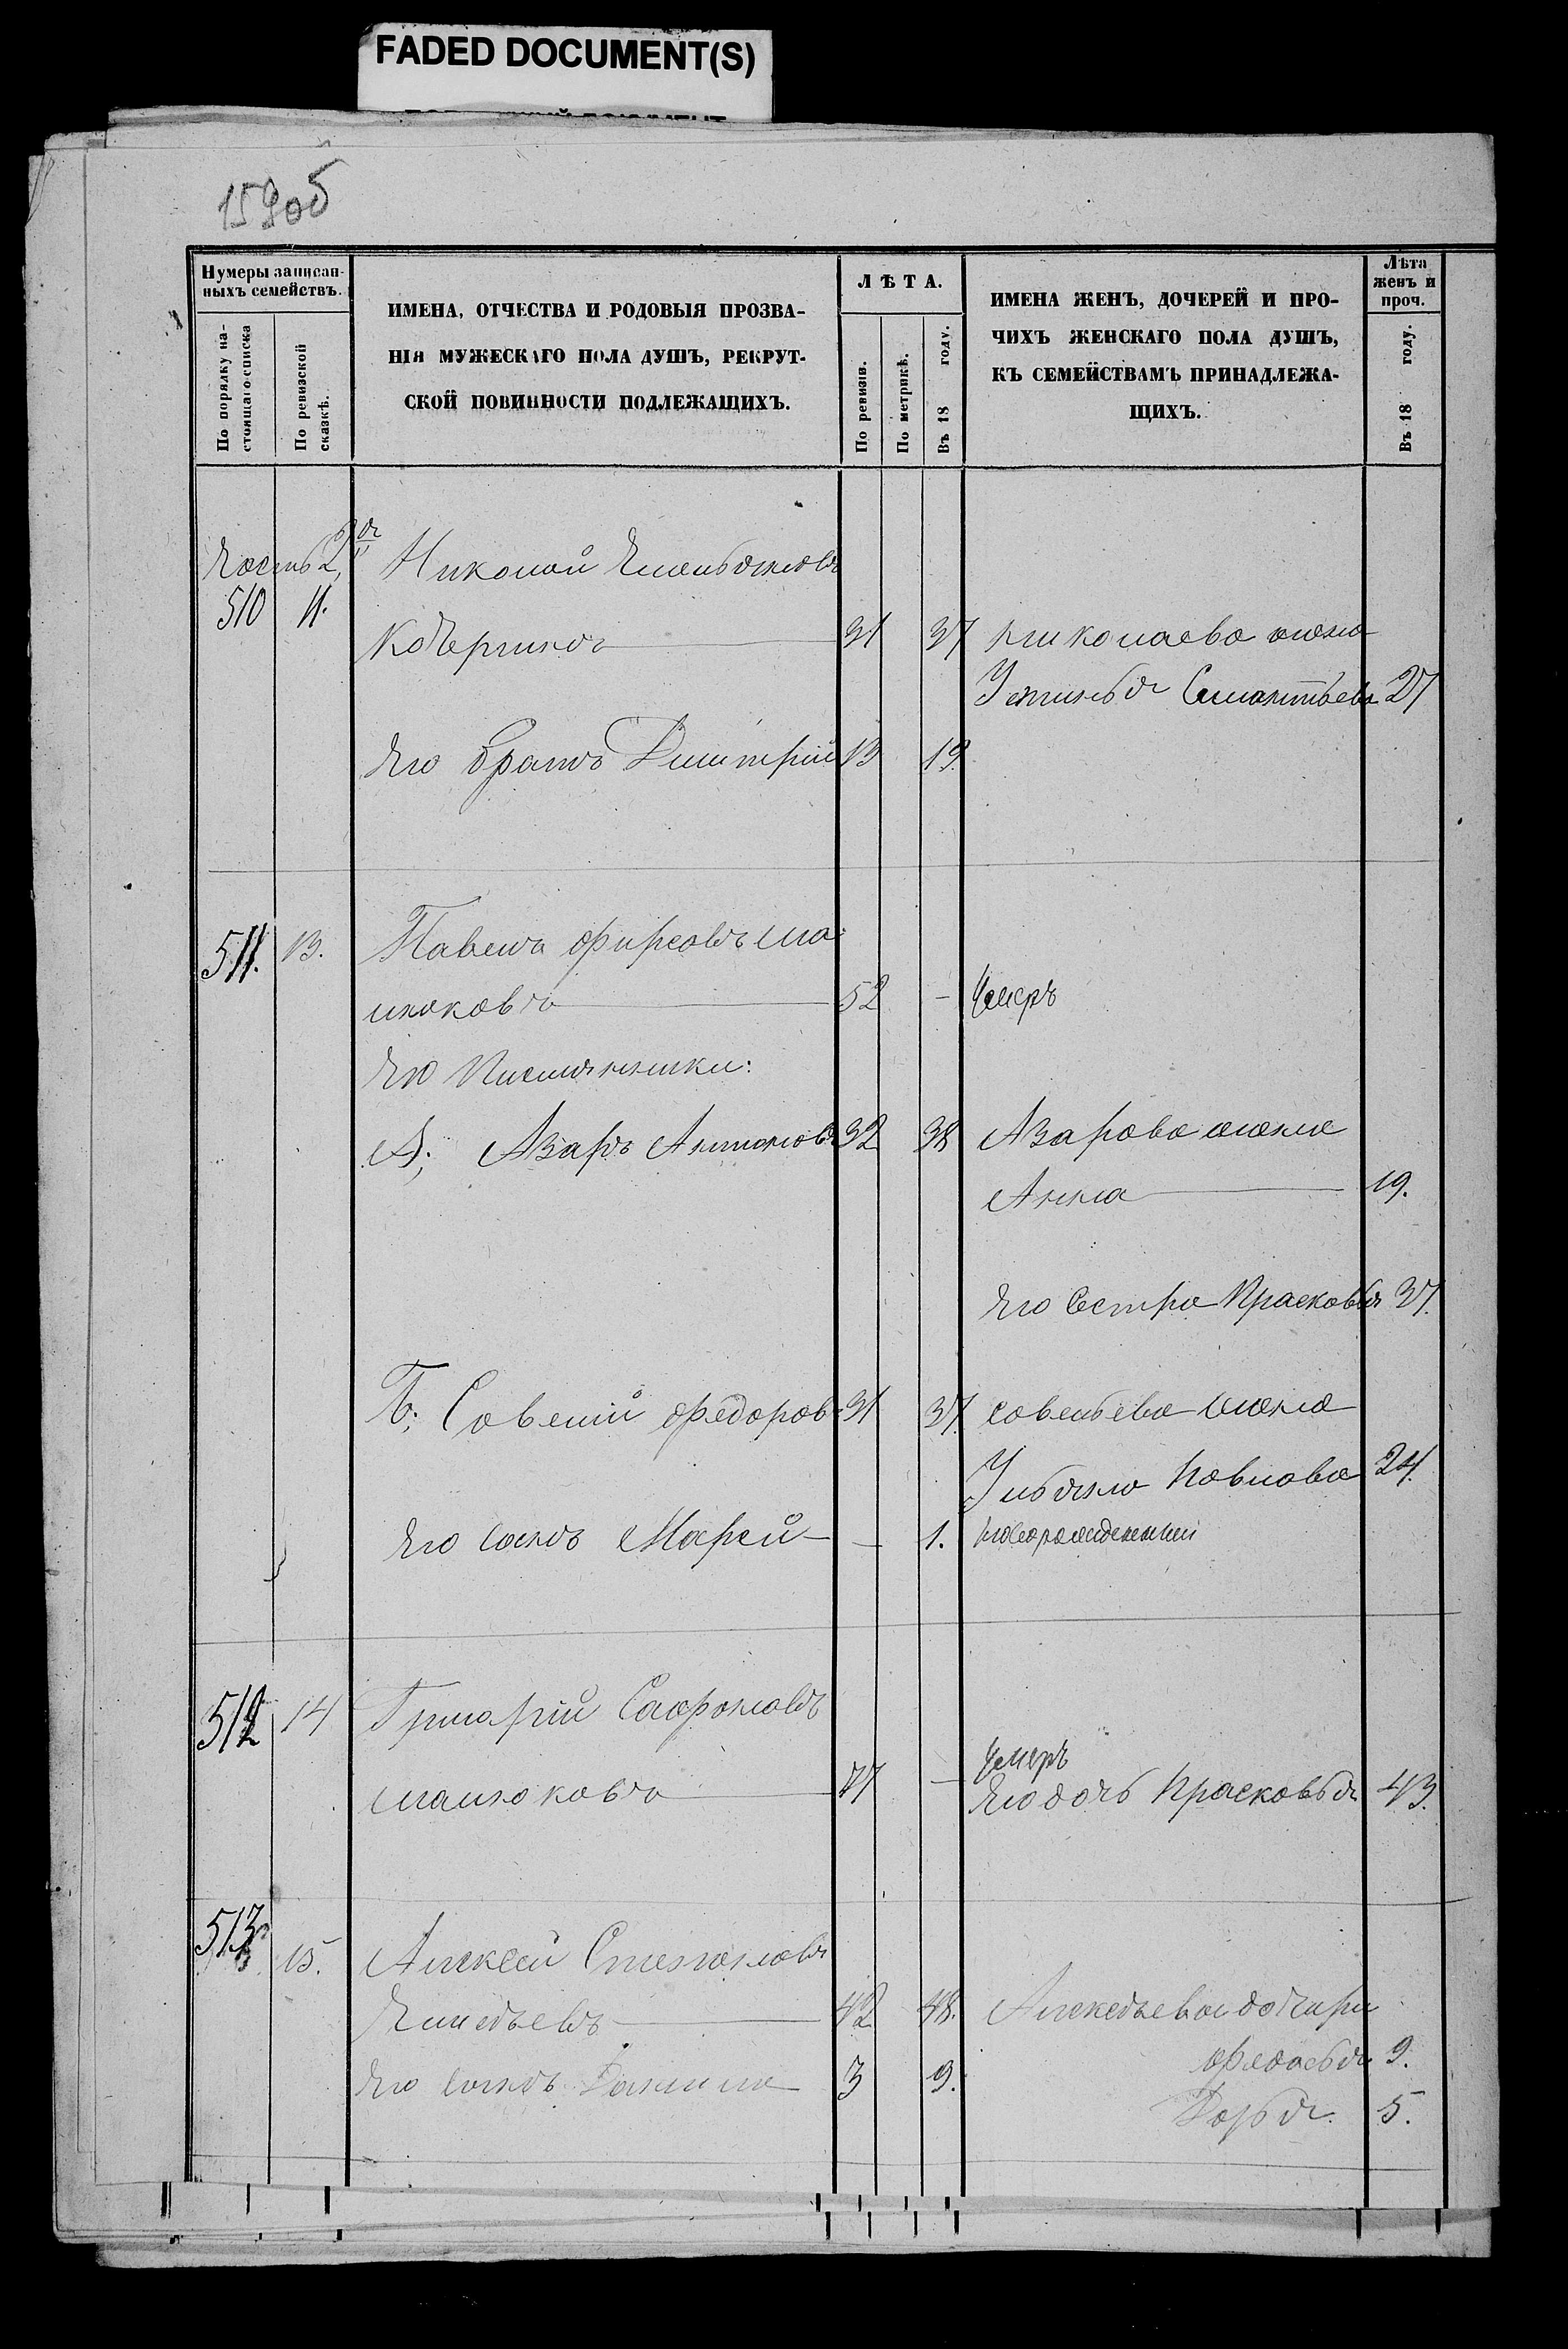 FADED DOCUMENT(S)
159об
Нумеры записан-
ныхъ семействъ.
По порядку на-
стоящаго списка
По ревизской
сказкѣ.
ИМЕНА, ОТЧЕСТВА И РОДОВЫЯ ПРОЗВА-
НІЯ МУЖЕСКАГО ПОЛА ДУШЪ, РЕКРУТ-
СКОЙ ПОВИННОСТИ ПОДЛЕЖАЩИХЪ.
ЛѢТА.
По ревизіи.
По метрикѣ.
Въ 18 году.
ИМЕНА ЖЕНЪ, ДОЧЕРЕЙ И ПРО-
ЧИХЪ ЖЕНСКАГО ПОЛА ДУШЪ,
КЪ СЕМЕЙСТВАМЪ ПРИНАДЛЕЖА-
ЩИХЪ.
Лѣта
женъ и
проч.
Въ 18 году.
Часть 2я Николай Емельяновъ
510 11.
31 37 Николаева жена
Устинья 27
Его братъ Дмитрій 13 19.
511. 13. Павелъ Фирсовъ Ма-
люковъ 52 - Умеръ
Его Племянники:
А; Азаръ Антоновъ 32 38 Азарова жена
Анна 19.
Его сестра Прасковья 37.
Б; Савелій Федоровъ 31 37. Савельева жена
Ульяна Павлова 24.
Его сынъ Марей — 1. новорожденный
512 14 Григорій Сафроновъ
Малюковъ 77 — Умеръ
Его дочь Прасковья 43.
513 15. Алексѣй Степановъ
Елисѣевъ 42 48. Алексѣева дочери
Федосья 9.
Его сынъ Данила 3 9.
Дарья. 5.